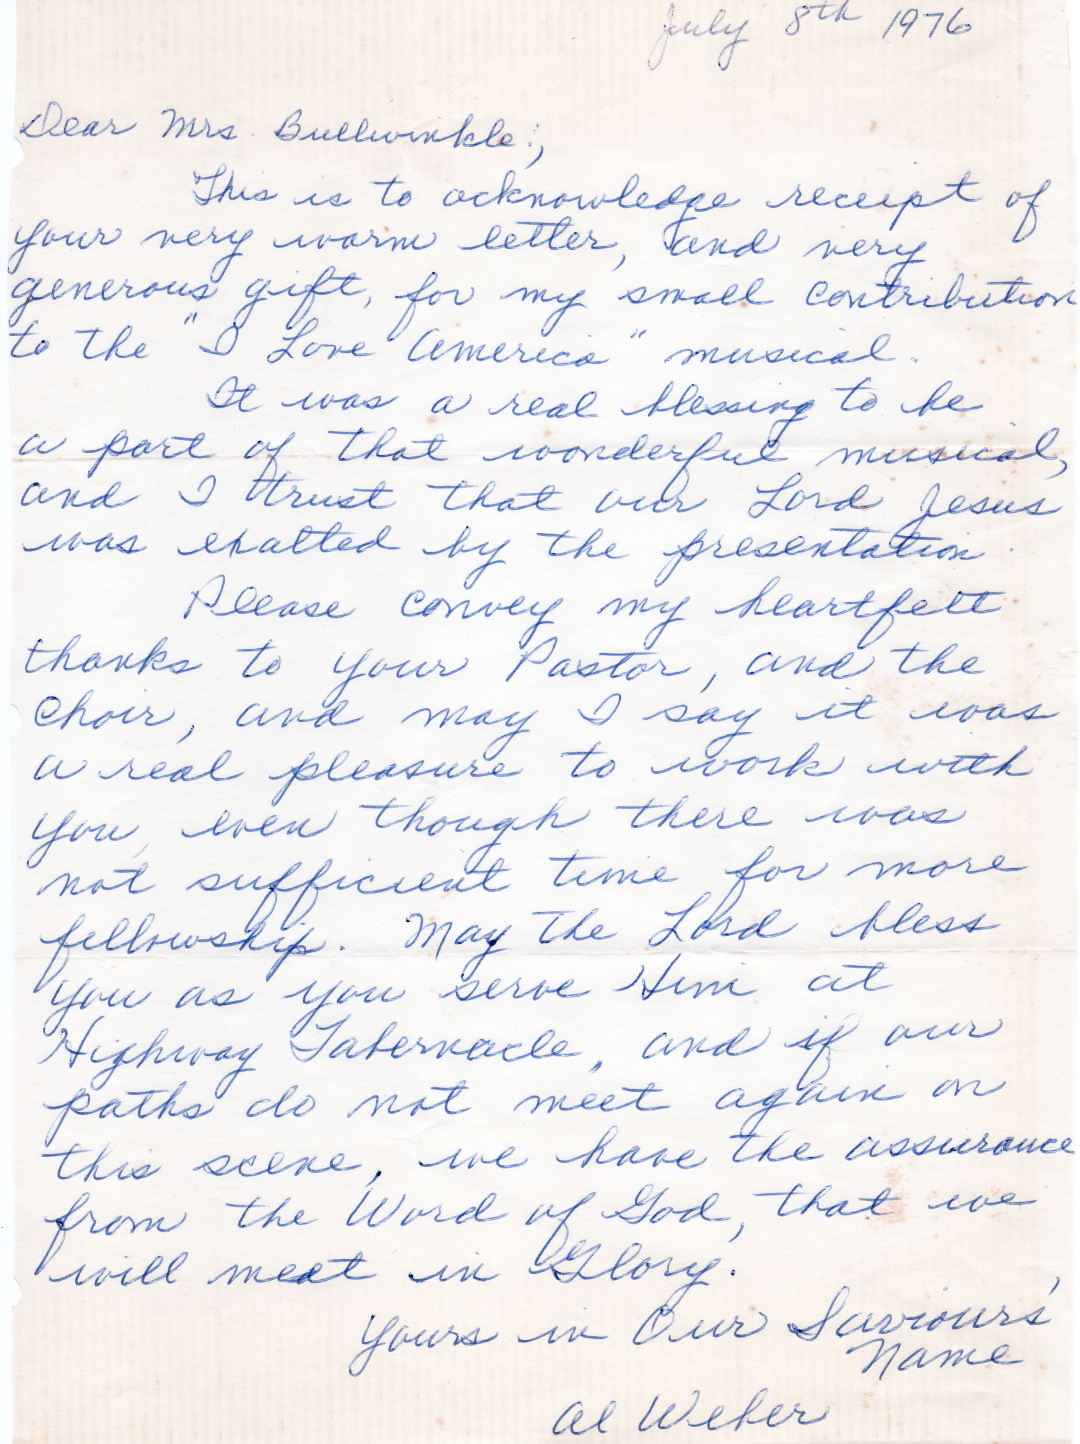 July 8th 1976
Dear Mrs. Bullwinkle:,
This is to acknowledge receipt of
your very warm letter, and very
generous gift, for my small contribution
to the "I Love America" musical.
It was a real blessing to be
a part of that wonderful musical,
and I trust that our Lord Jesus
was exalted by the presentation.
Please convey my heartfelt
thanks to your Pastor, and the
Choir, and may I say it was
a real pleasure to work with
you, even though there was
not sufficient time for more
fellowship. May the Lord bless
you as you serve Him at
Highway Tabernacle, and if our
paths do not meet again on
this scene, we have the assurance
from the Word of God, that we
will meet in Glory.
Yours in Our Saviours'
Name
Al Weber